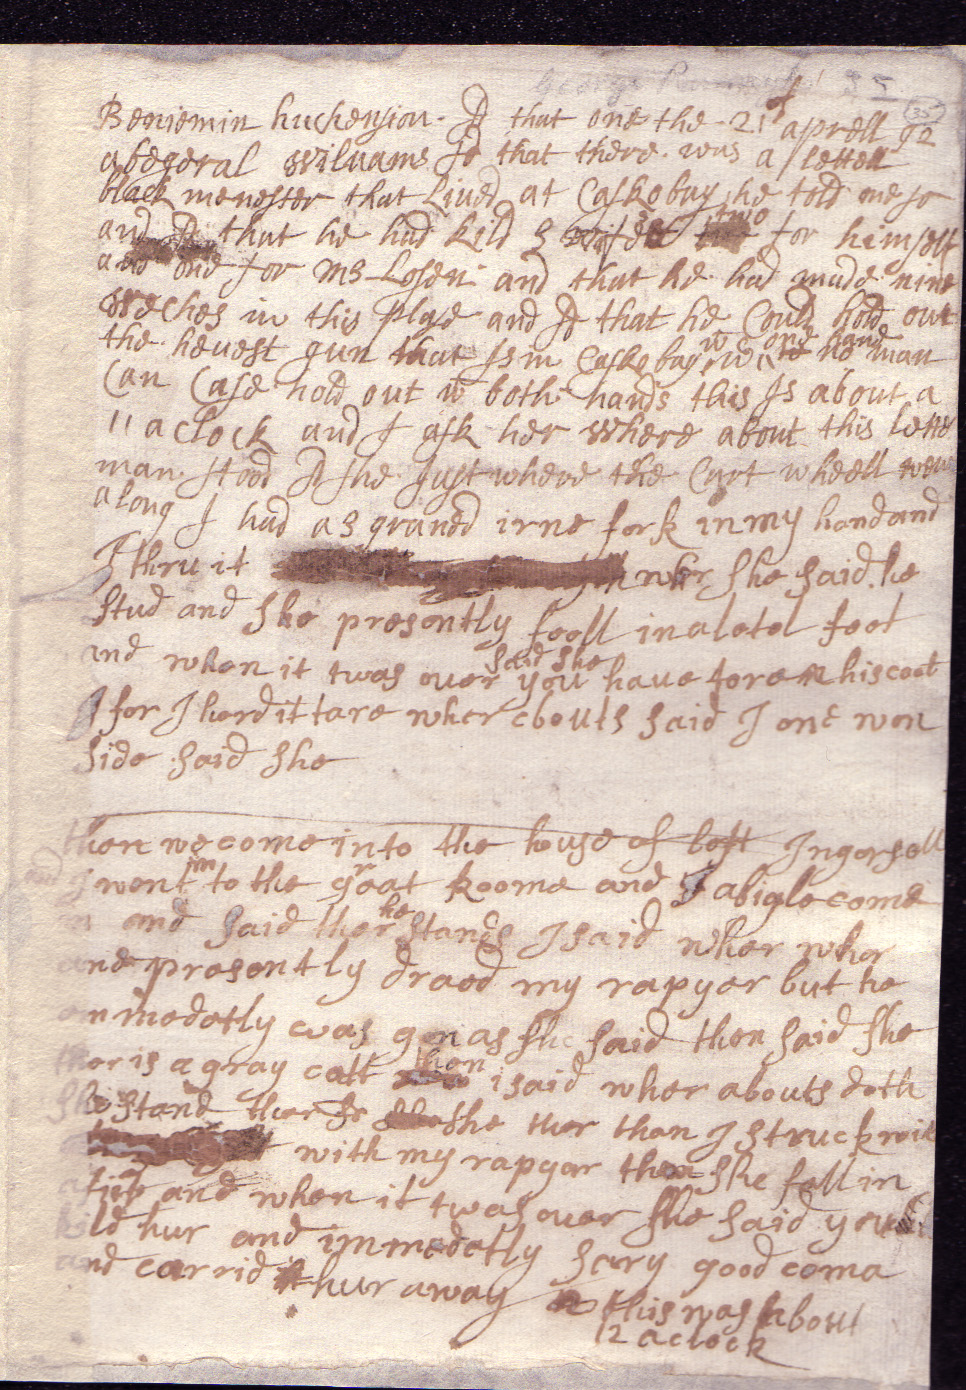 35
35
Beniemin huchension. Sd that one the 21 of aprell 92
abegeral Williams Sd that there was a lettell
black menester that Lived at Caskobay he told me so
and Sd that he had kild 3 wifes two for himself
and one for Ms Losen and that he had made nine
Weches in this plase and Sd that he Could hold out
the hevest gun that Is in Caskobay w one hand wc no man
Can Case hold out w both hands this Is about a
11 a clock and I ask her Where about this lettell
man stood Sd she Just where the Cart wheell went
along I had a 3 graned irne fork in my hand and
I thru it wher she said he
stud and she presently fell in a letel feet
and when it twas over said she you have toren his coot
for I herd it tare wher abouts said I one won
side said she
then we come into the house of left Ingersoll
and I went in to the great Roome and abigle come
in and said ther he stands I said wher wher
and presently draed my rapyer but he
emmedetly was gon as she said then said she
ther is a gray catt then i said wher abouts doth
she stand ther sd she ther then I struck
with my rapyer then she fell in
a fitt and when it twas over she said you
kild hur and immedetly Sary good come
and carrid hur away this was about
12 a clock